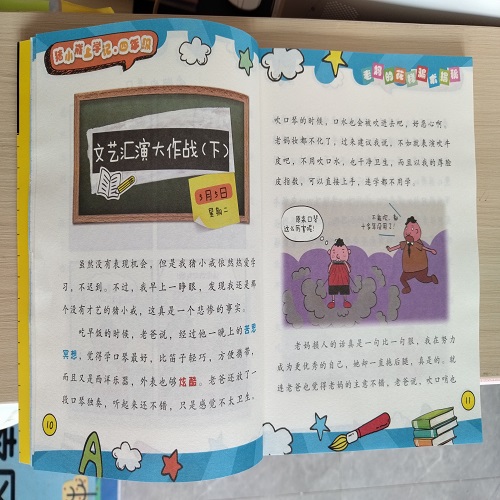 猪小戒上学记·四年级
文艺汇演大作战(下)
5月5日
星期二
虽然没有表现机会，但是我猪小戒依然热爱学
习，不迟到。不过，我早上一睁眼，发现我还是那
个没有才艺的猪小戒，这真是一个悲惨的事实。
吃早饭的时候，老爸说，经过他一晚上的苦思
冥想，觉得学口琴最好，比笛子轻巧，方便携带，
而且又是西洋乐器，外表也够炫酷。老爸还放了一
段口琴独奏，听起来还不错，只是感觉不太卫生。
10
吹口琴的时候，口水也会被吹进去吧，好恶心啊。
老妈妆都不化了，过来建议我说，不如就表演吹牛
皮吧，不用吹口水，也干净卫生，而且以我的厚脸
皮指数，可以直接上手，连学都不用学。
原来口琴
这么厉害呢！
老妈损人的话真是一句比一句狠，我在努力
成为更优秀的自己，她却一直拖后腿，真是的。就
连老爸也觉得老妈的主意不错。老爸说，吹口哨也
11